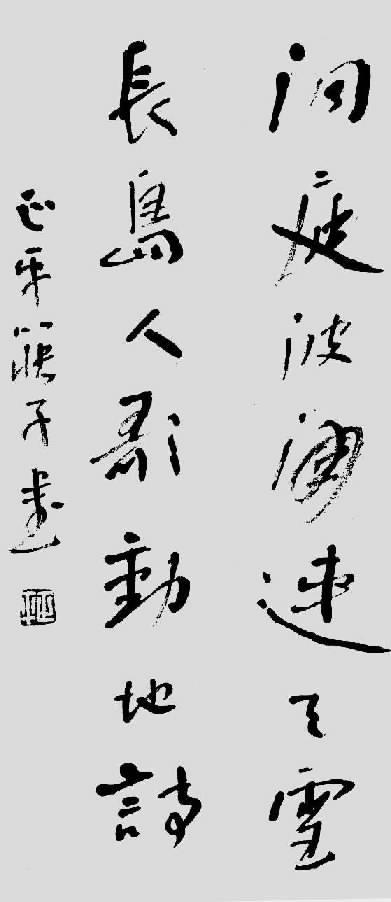 洞庭波涌連天雪
長島人歌動地詩
正平子書